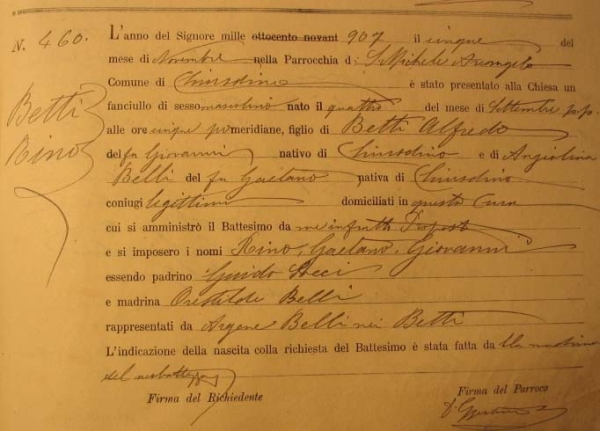 N. 460.
Betti
Rino
L'anno del Signore mille ottocento novant 907 il cinque del
mese di Novembre nella Parrocchia di S. Michele Arcangelo
Comune di Chiusdino è stato presentato alla Chiesa un
fanciullo di sesso mascolino nato il quattro del mese di Settembre pp.
alle ore cinque pomeridiane, figlio di Betti Alfredo
del fu Giovanni nativo di Chiusdino e di Angiolina
Belli del fu Gaetano nativa di Chiusdino
coniugi legittimi domiciliati in questa Cura
cui si amministrò il Battesimo da me infratto
e si imposero i nomi Rino, Gaetano, Giovanni
essendo padrino Guido
e madrina Belli
rappresentati da Argene Belli nei Betti
L'indicazione della nascita colla richiesta del Battesimo è stata fatta da
del
Firma del Richiedente
Firma del Parroco